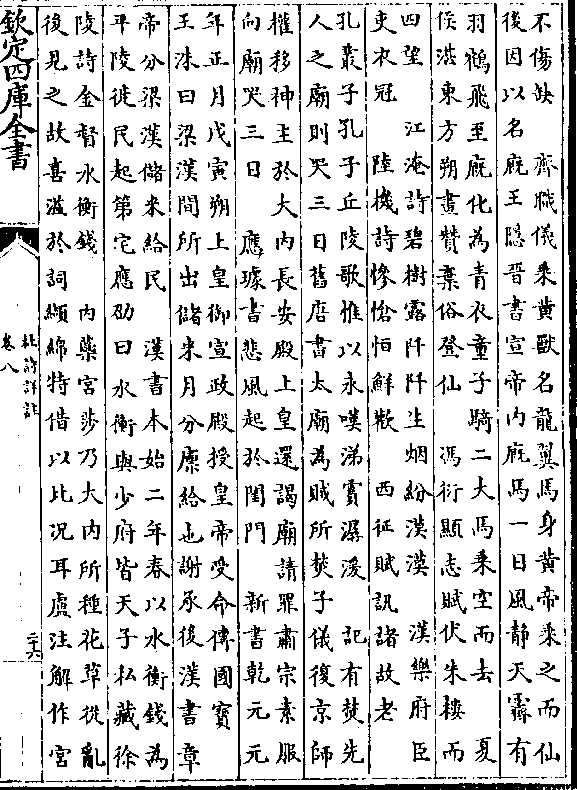 不傷缺　齊職儀乘黄獸名龍翼馬身黄帝乘之而仙
後因以名廐王隱晉書宣帝内廐馬一日風静天霽有
羽鶴飛至廐化為青衣童子騎二大馬乘空而去　夏
侯湛東方朔畫贊棄俗登仙　馮衍顯志賦伏朱樓而
四望　江淹詩碧樹露阡阡生烟紛漠漠　漢樂府臣
吏衣冠　陸機詩慘愴恒鮮歡　西征賦訊諸故老
孔叢子孔子丘陵歌惟以永嘆涕霣潺湲　記有焚先
人之廟則哭三日舊唐書太廟為賊所焚子儀復京師
權移神主於大内長安殿上皇還謁廟請罪肅宗素服
向廟哭三日　應璩書悲風起於閨門　新書乾元元
年正月戊寅朔上皇御宣政殿授皇帝受命傳國寶
王洙曰梁漢間所出儲米月分廩給也謝承後漢書章
帝分梁漢儲米給民　漢書本始二年春以水衡錢為
平陵徙民起第宅應劭曰水衡與少府皆天子私藏徐
陵詩金督水衡錢　内藥宫莎乃大内所種花草從亂
後見之故喜溢於詞纈綿特借以比况耳盧注解作宫
欽定四庫全書
杜詩詳註
卷八
二六